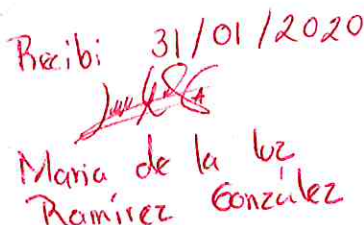 Recibi 31/01/2020
Maria de la luz
Ramírez González